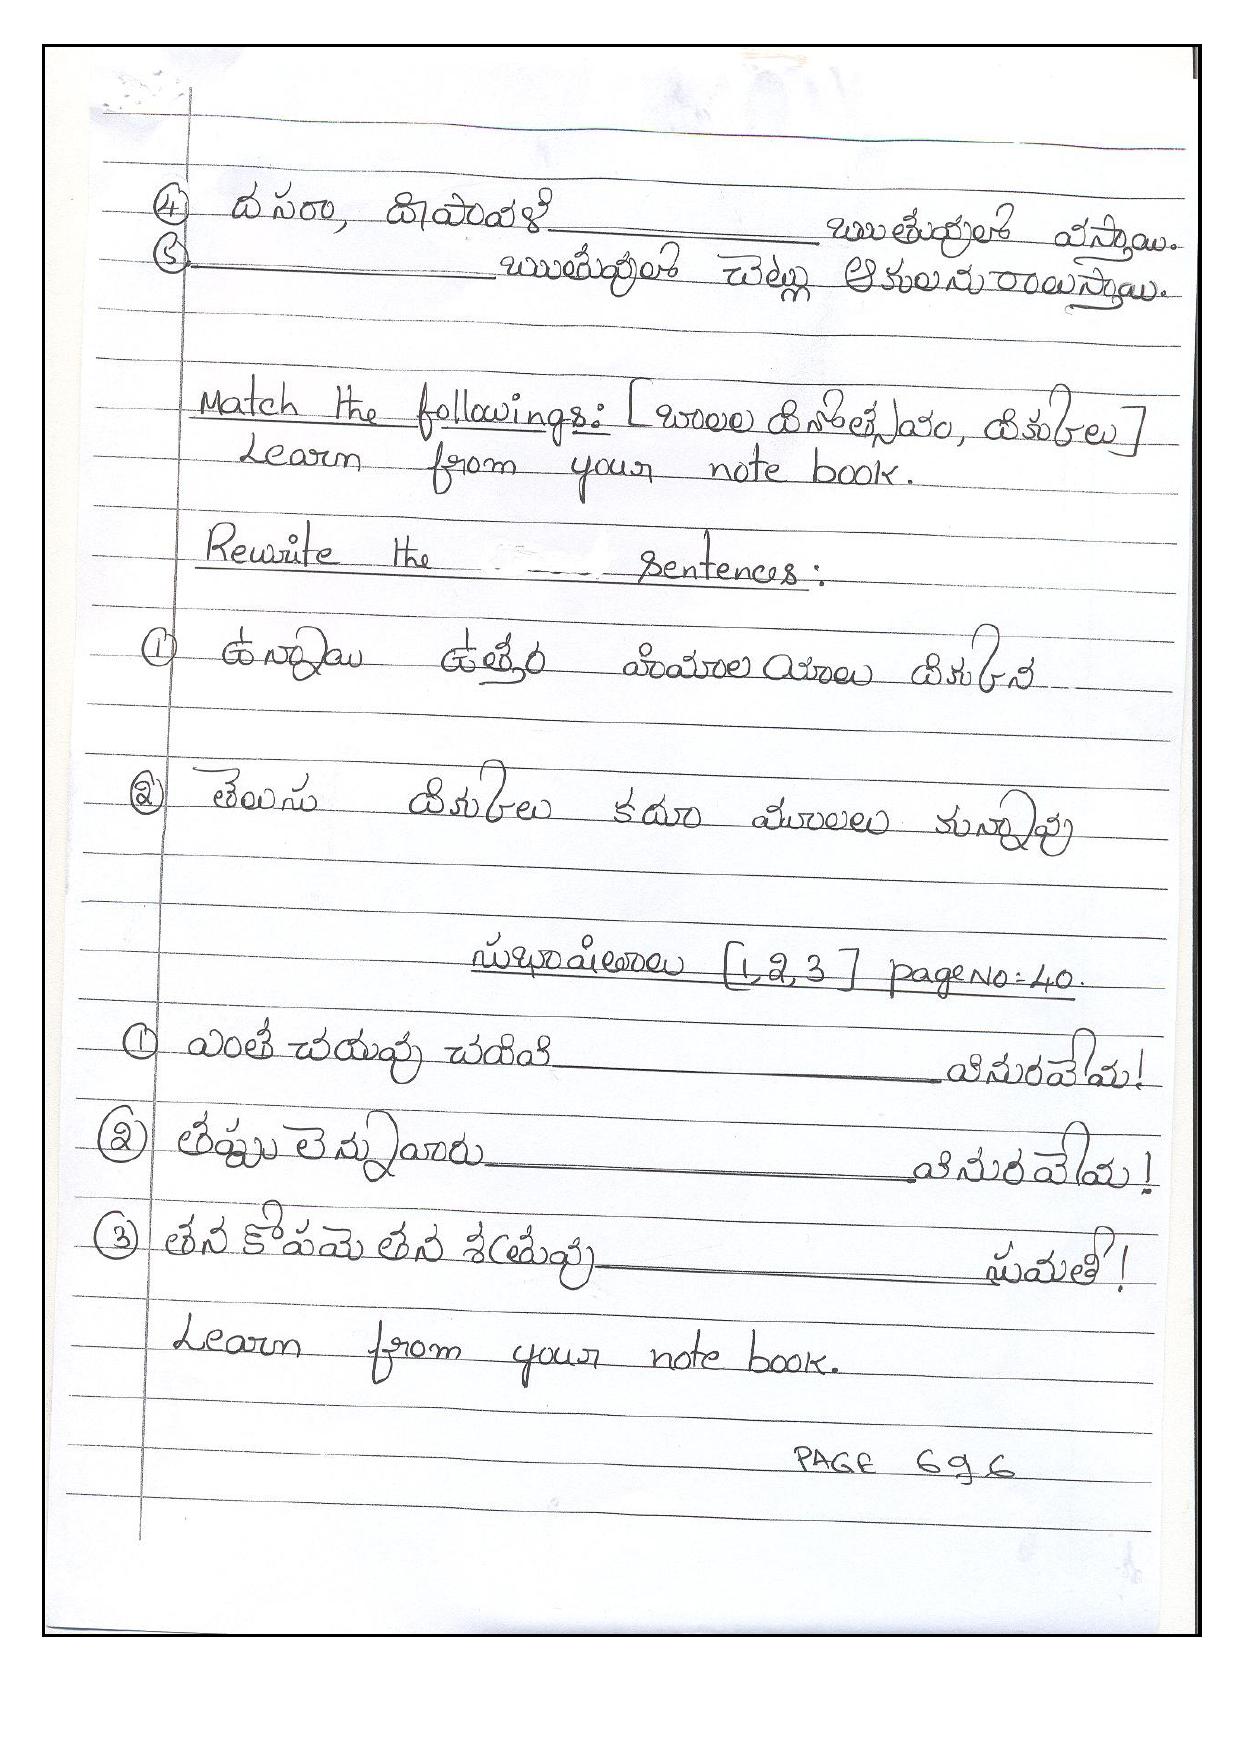 ④ దసరా, దీపావళి __________ ఋతువులో వస్తాయి.
⑤ __________ ఋతువులో చెట్లు ఆకులను రాలుస్తాయి.
Match the followings: [బాలల దినోత్సవం, దిక్కులు]
Learn from your note book.
Rewrite the sentences:
① ఉన్నాయి ఉత్తర హిమాలయాలు దిక్కున
② తెలుసు దిక్కులు కదా మూలలు కున్నావు
సుభాషితాలు [1,2,3] page No=40.
① ఎంత చదువు చదివి __________ వినురవేమ!
② తప్పు లెన్నువారు __________ వినురవేమ!
③ తన కోపమె తన శత్రువు __________ సుమతీ!
Learn from your note book.
PAGE 6 ఇ 6